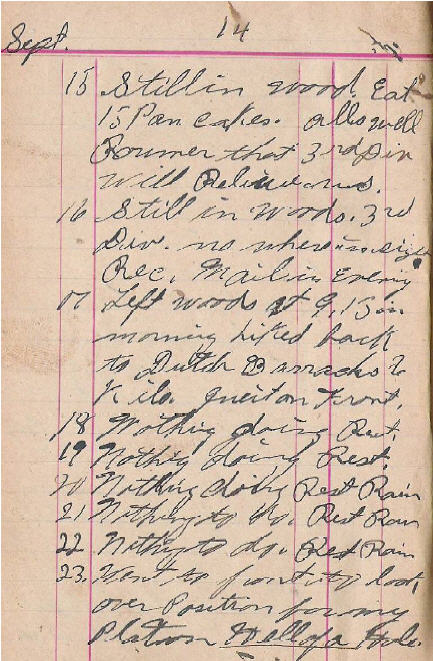 Sept. 14
15 Still in wood. Eat
15 Pan cakes. All is well
Roumer that 3rd Div
will Relieve us.
16 Still in Woods. 3rd
Div. no where in sight
Rec. Mail in Evening
17 Left woods at 9,15 in
morning hiked back
to Dutch Barracks 2
Kilo. Quiet on Front.
18 Nothing doing Rest.
19 Nothig doing Rest.
20 Nothing doing Rest Rain
21 Nothing to do. Rest Rain
22 Nothg to do. Rest Rain
23. Went to front to look
over Position for my
Platoon Hell of a Hole.